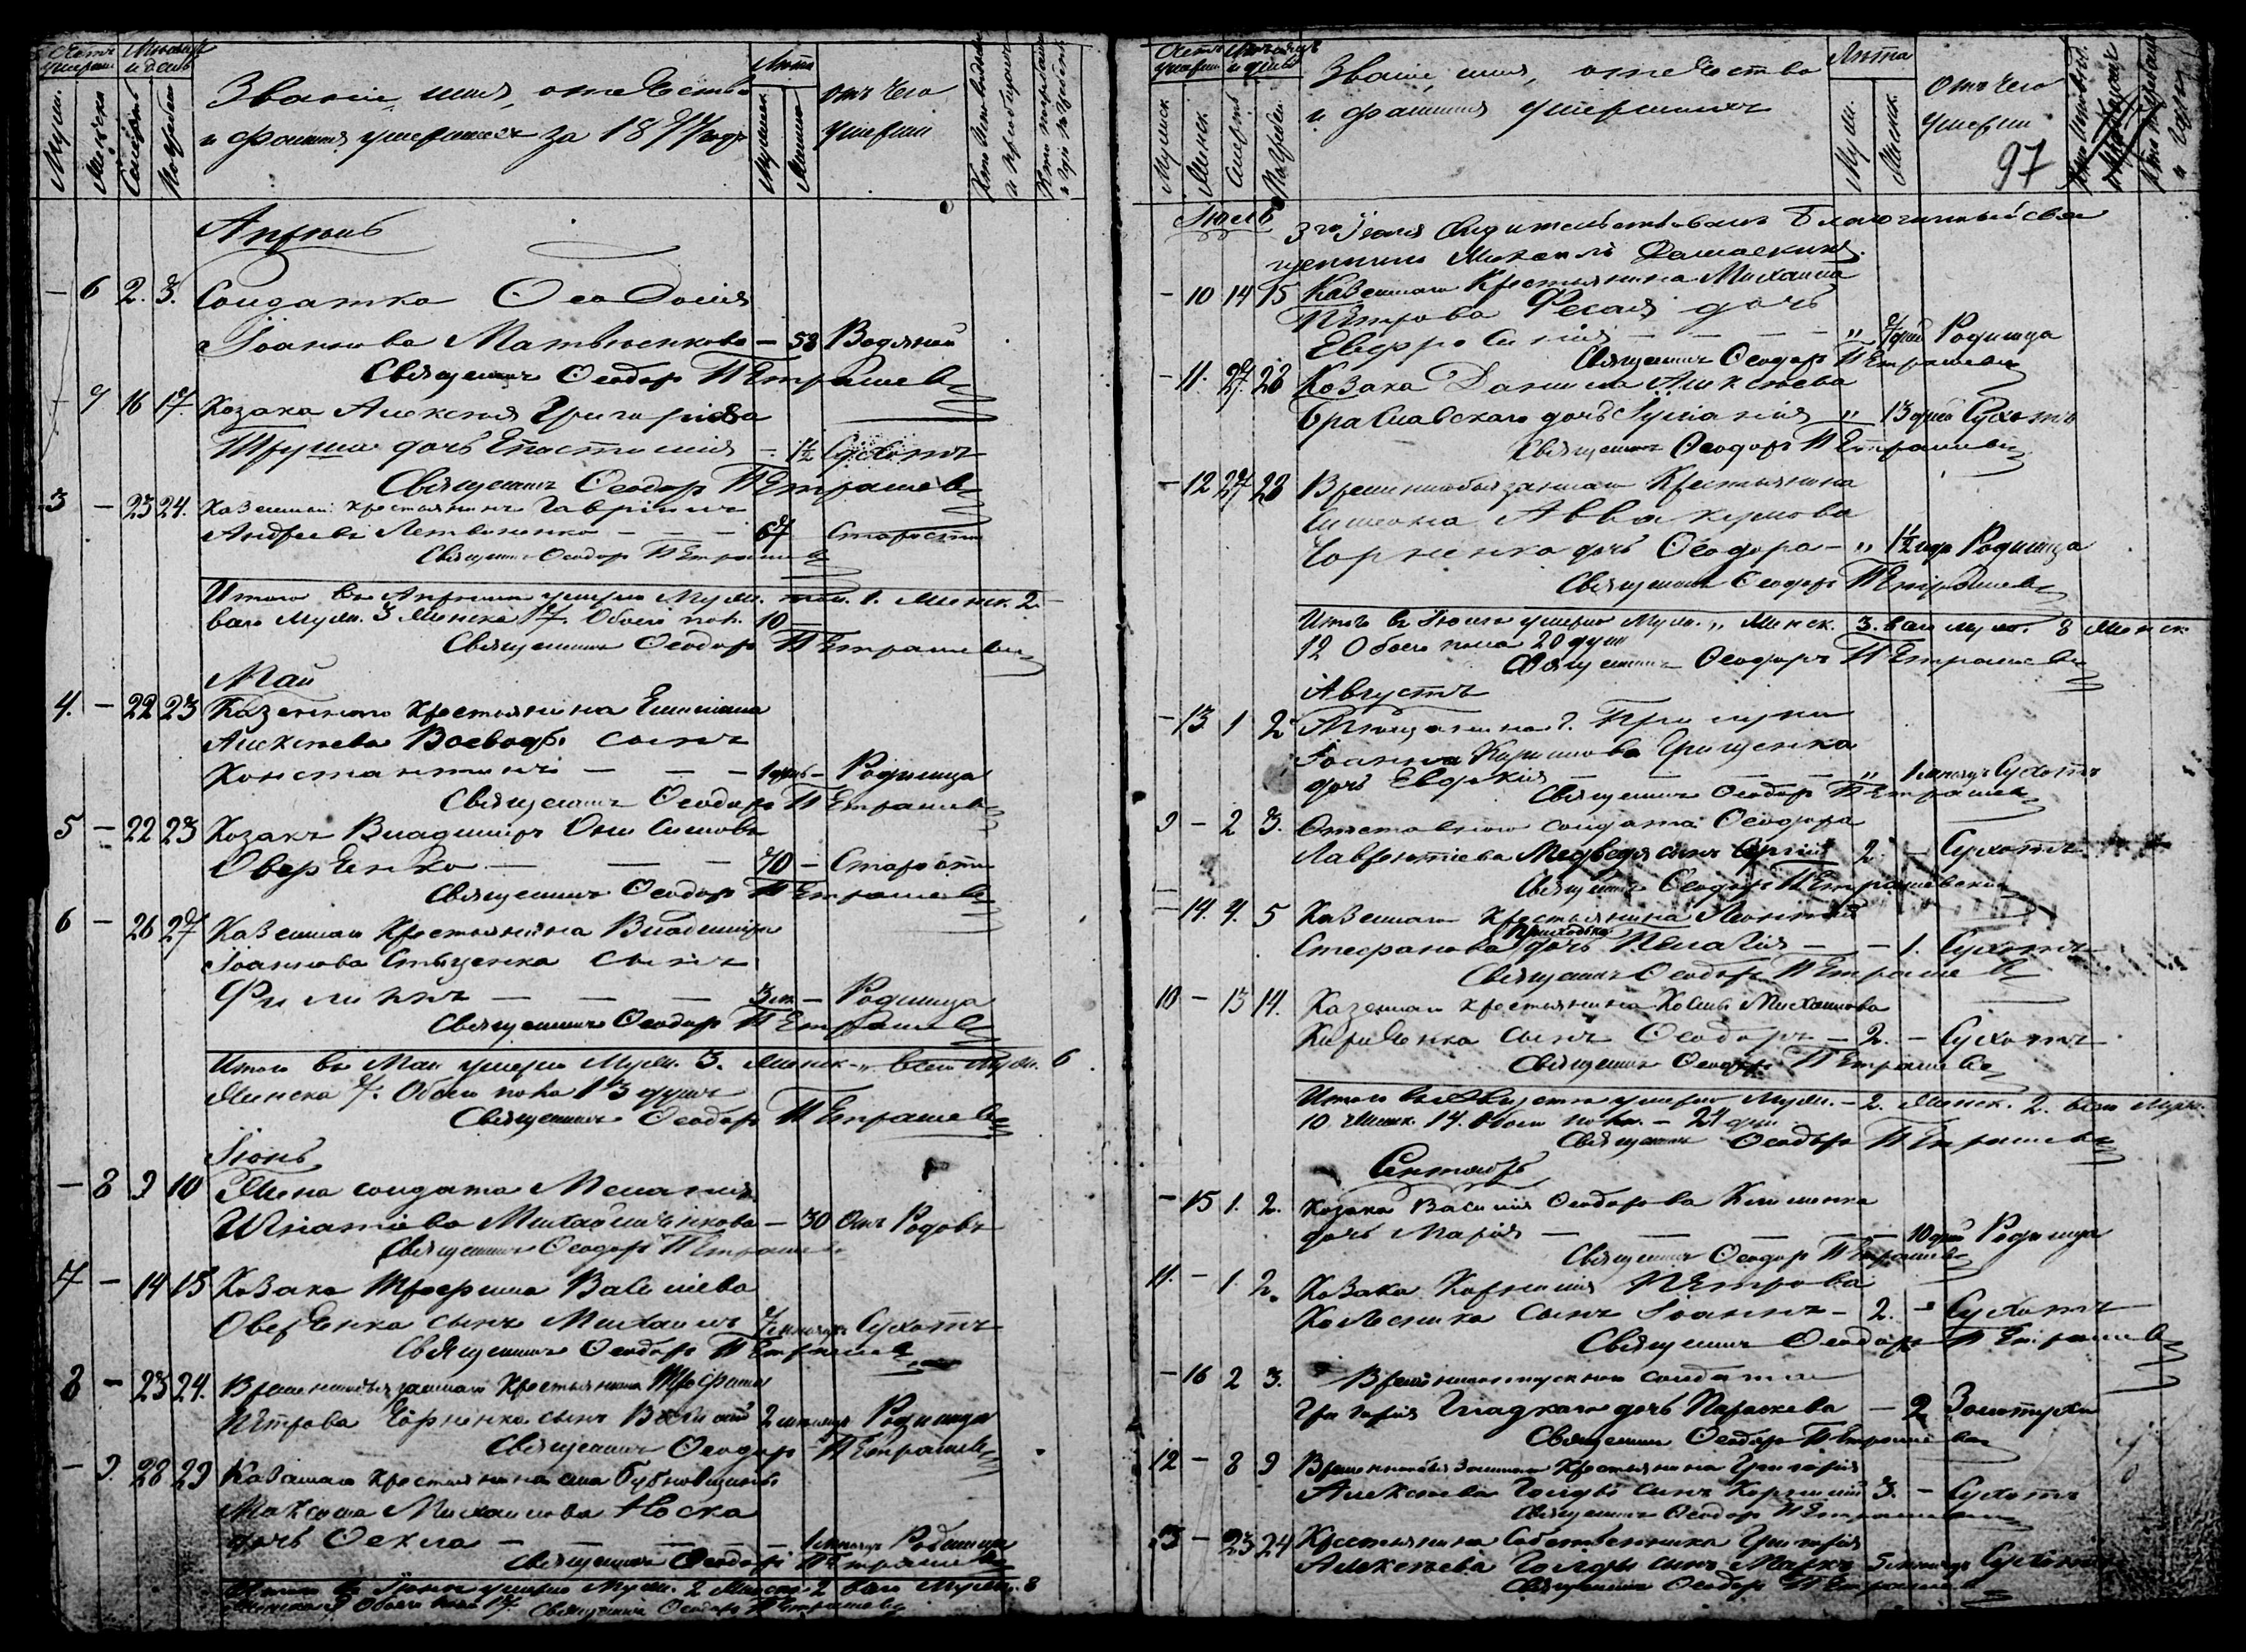 Счетъ умерш. Мѣсяцъ и день
Звание, имя, отечество
и фамилия умершихъ за 1877 годъ
Лѣта
отъ чего умерли
Мужск. Женска Смерть Погребен.
Апрѣль
— 6 2. 3. Солдатка Ѳеодосія
Іоаннова Матвѣенкова — 58 Водяной
Священникъ Ѳеодоръ Петрашев
— 7 16 17 Козака Алексѣя Григоріева
Труша дочь Епистимія — 1½ Сухотъ
Священникъ Ѳеодоръ Петрашев
3 — 23 24. Казенный крестьянинъ Гавріилъ
Андреевъ Летвиненко — — — 67 Старости
Священникъ Ѳеодоръ Петрашев
Итого въ Апрѣлѣ умерло Муж. пол. 1. Женск. 2.
всего Муж. 3 Женска 7. Обоего пол. 10
Священникъ Ѳеодоръ Петрашев
Май
4. — 22 23 Казенного крестьянина Емиліана
Алексѣева Воеводы сынъ
Константинъ — — — 1 день — Родимца
Священникъ Ѳеодоръ Петрашев
5 — 22 23 Козакъ Владиміръ Онисимовъ
Оверченко — — — 70 — Старости
Священникъ Ѳеодоръ Петрашев
6 — 26 27 Казеннаго Крестьянина Владиміра
Іоаннова Стыценка сынъ
Филиппъ — — — — Родимца
Священникъ Ѳеодоръ Петрашев
Итого въ Маѣ умерло Муж. 3. Женск. „ всего Муж. 6
Женска 7. Обоего пола 13 душъ
Священникъ Ѳеодоръ Петрашев
Іюнь
— 8 9 10 Жена солдата Меланія
Игнатіева Михайличенкова — 30 Отъ Родовъ
Священникъ Ѳеодоръ Петрашев
7 — 14 15 Козака Трофима Василіева
Оверченка сынъ Михаилъ 7 мѣсяцъ Сухотъ
Священникъ Ѳеодоръ Петрашев
8 — 23 24. Временнообязаннаго Крестьянина Трофима
Петрова Чорненка сынъ Василій 2 мѣсяцъ Родимца
Священникъ Ѳеодоръ Петрашев
— 9. 28 29 Казеннаго крестьянина села Бубновщины
Максима Михаилова Носка
дочь Ѳекла — — — — 1 мѣсяцъ Родимца
Священникъ Ѳеодоръ Петрашев
Итого въ Іюнѣ умерло Муж. 2 Женска 2 всего Муж. 8
Женска 9 Обоего пола 17. Священникъ Ѳеодоръ Петрашев
Счетъ умерш. Мѣсяцъ и день
Званіе, имя, отечество
и фамилия умершихъ
Лѣта
Отъ чего умерли
97
Мужск. Женск. Смерть Погребен. Муж. Женск.
Іюль 3го Іюля Свидетельствовалъ Благочинный Свя
щенникъ Михаилъ Дамаскинъ.
— 10 14 15 Казеннаго Крестьянина Михаила
Петрова дочь
Евфросинія — — — — „ 7 дней Родимца
Священникъ Ѳеодоръ Петрашев
— 11. 27. 28 Козака Даниила Алексѣева
Браславскаго дочь Іуліанія „ 13 дней Сухотъ
Священникъ Ѳеодоръ Петрашев
— 12 27 28 Временнообязаннаго Крестьянина
Симеона Аввакумова
Чорненка дочь Ѳеодора — „ 1½ года Родимца
Священникъ Ѳеодоръ Петрашев
Итого въ Іюлѣ умерло Муж. „ Женск. 3. всего муж. 8 Женск.
12 Обоего пола 20 душъ
Священникъ Ѳеодоръ Петрашев
Августъ
— 13. 1 2 Мѣщанина г. Прилуки
Іоанна Кириллова Грищенка
дочь Евдокія — — — — „ 1 мѣсяцъ Сухотъ
Священникъ Ѳеодоръ Петрашев
9 — 2 3. Отставного солдата Ѳеодора
Лаврентіева Медведя сынъ Сергій 2. — Сухотъ
Священникъ Ѳеодоръ Петрашевскій
— 14. 4. 5 Казеннаго Крестьянина Леонтія
Стефанова Приходька дочь Пелагія — — 1. Сухотъ
Священникъ Ѳеодоръ Петрашев
10 — 13 14. Казеннаго крестьянина Космы Михаилова
Кириченка сынъ Ѳеодоръ — 2. — Сухотъ
Священникъ Ѳеодоръ Петрашев
Итого въ Августѣ умерло Муж. — 2. Женск. 2. всего Муж.
10 Женск. 14. Обоего пола — 24 душ
Священникъ Ѳеодоръ Петрашев
Сентябрь
— 15 1. 2. Козака Василія Ѳеодорова Клименка
дочь Марія — — — — 10 дней Родимца
Священникъ Ѳеодоръ Петрашев
11. — 1. 2. Козака Корнилія Петрова
Колесника сынъ Іоаннъ — 2. — Сухотъ
Священникъ Ѳеодоръ Петрашев
— 16 2 3. Временноотпускнаго солдата
Григорія Гладкаго дочь Параскева — 2 Золотухи
Священникъ Ѳеодоръ Петрашев
12 — 8 9 Временнообязаннаго Крестьянина Григорія
Алексѣева Голоды сынъ Корнилій 3. — Сухотъ
Священникъ Ѳеодоръ Петрашев
13 — 23 24 Крестьянина Собственника Григорія
Алексѣева Голоды сынъ Маркъ 5 мѣсяцъ Сухотъ
Священникъ Ѳеодоръ Петрашев